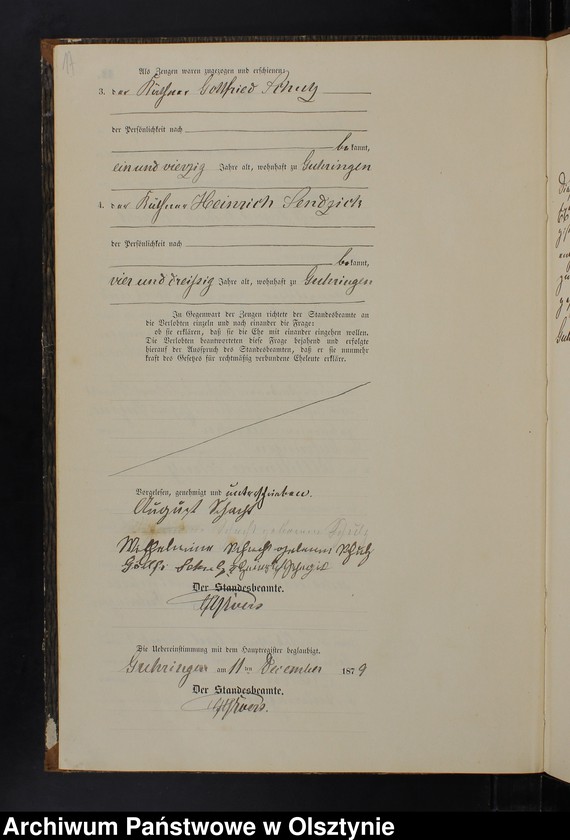 17
Als Zeugen waren zugezogen und erschienen:
3. der Käthner Gottfried Schulz
der Persönlichkeit nach
bekannt,
ein und vierzig Jahre alt, wohnhaft zu Guhringen
4. der Käthner Heinrich Sendzick
der Persönlichkeit nach
bekannt,
vier und dreißig Jahre alt, wohnhaft zu Guhringen
In Gegenwart der Zeugen richtete der Standesbeamte an
die Verlobten einzeln und nach einander die Frage:
ob sie erklären, daß sie die Ehe mit einander eingehen wollen.
Die Verlobten beantworteten diese Frage bejahend und erfolgte
hierauf der Ausspruch des Standesbeamten, daß er sie nunmehr
kraft des Gesetzes für rechtmäßig verbundene Eheleute erkläre.
Vorgelesen, genehmigt und unterschrieben.
August Schacht
Wilhelmine Schacht geborene Schulz
Der Standesbeamte.
Die Uebereinstimmung mit dem Hauptregister beglaubigt.
Guhringen am 11ten December 1879
Der Standesbeamte.
Archiwum Państwowe w Olsztynie